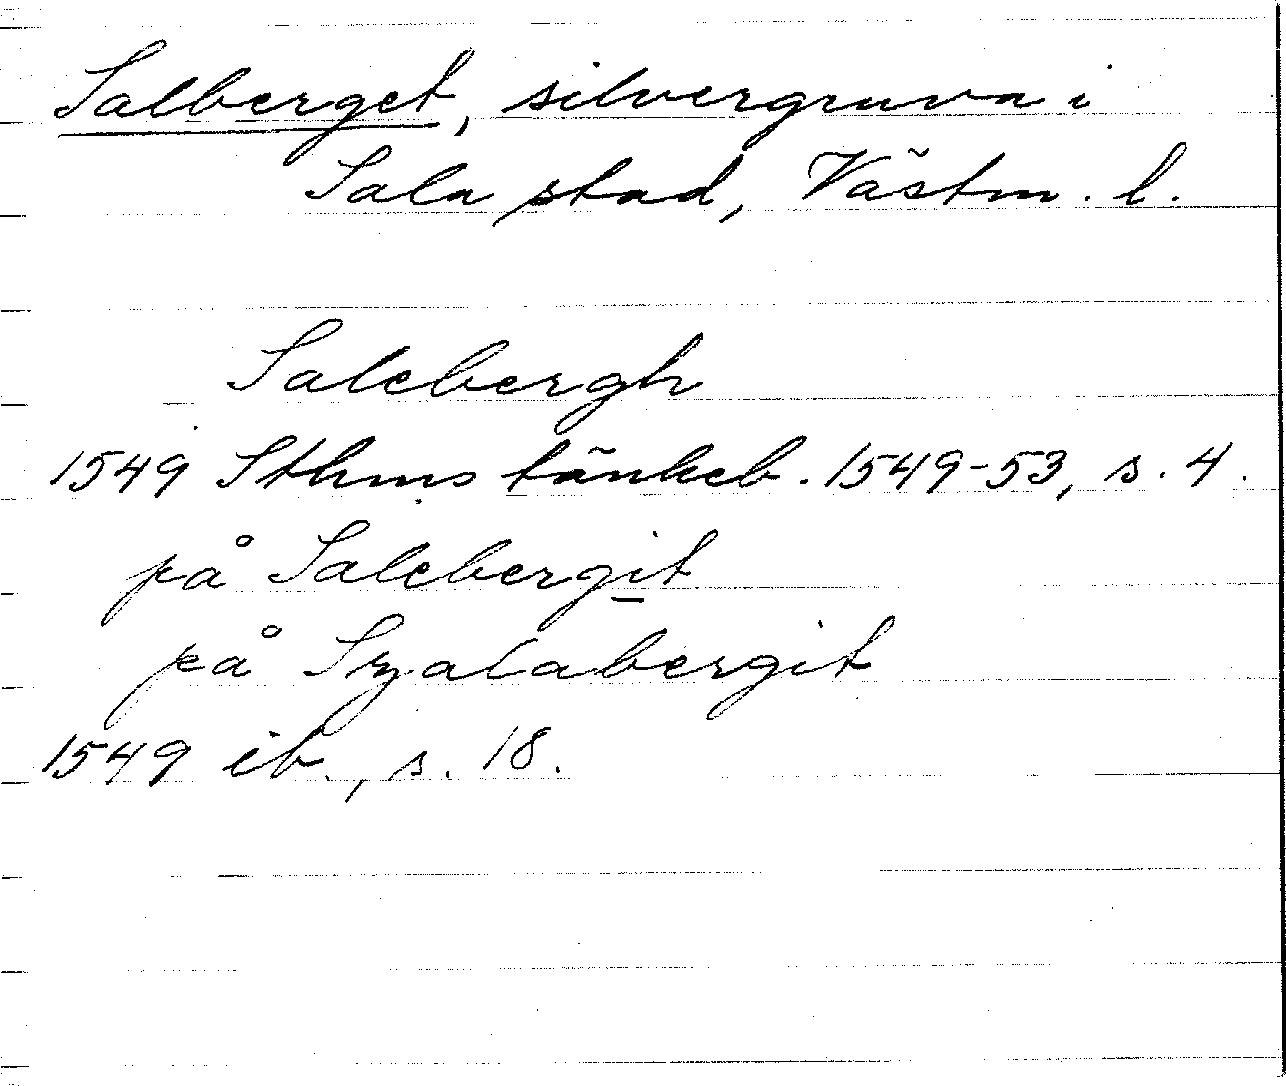 Salberget, silvergruva i
Sala stad, Västm. l.
Salebergh
1549 Sthms tänkeb. 1549-53, s. 4.
på Salebergit
på Szalabergit
1549 ib., s. 18.